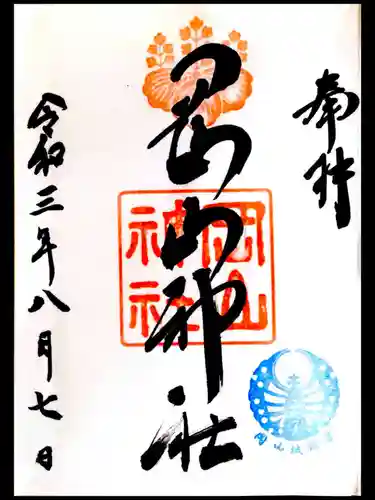 奉拝
岡山神社
岡山
神社
令和三年八月七日